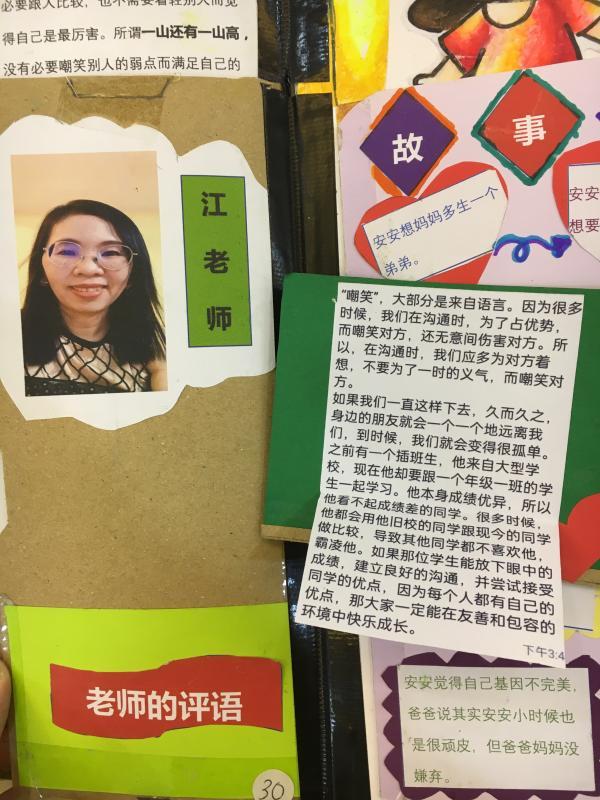 必要跟人比较，也不需要看轻别人而觉
得自己是最厉害。所谓一山还有一山高，
没有必要嘲笑别人的弱点而满足自己的
江
老
师
老师的评语
30
故
事
安安想妈妈多生一个
弟弟。
安安
想要
“嘲笑”，大部分是来自语言。因为很多
时候，我们在沟通时，为了占优势，
而嘲笑对方，还无意间伤害对方。所
以，在沟通时，我们应多为对方着
想，不要为了一时的义气，而嘲笑对
方。
如果我们一直这样下去，久而久之，
身边的朋友就会一个一个地远离我
们，到时候，我们就会变得很孤单。
之前有一个插班生，他来自大型学
校，现在他却要跟一个年级一班的学
生一起学习。他本身成绩优异，所以
他看不起成绩差的同学。很多时候，
他都会用他旧校的同学跟现今的同学
做比较，导致其他同学都不喜欢他，
霸凌他。如果那位学生能放下眼中的
成绩，建立良好的沟通，并尝试接受
同学的优点，因为每个人都有自己的
优点，那大家一定能在友善和包容的
环境中快乐成长。
下午3:4
安安觉得自己基因不完美，
爸爸说其实安安小时候也
是很顽皮，但爸爸妈妈没
嫌弃。